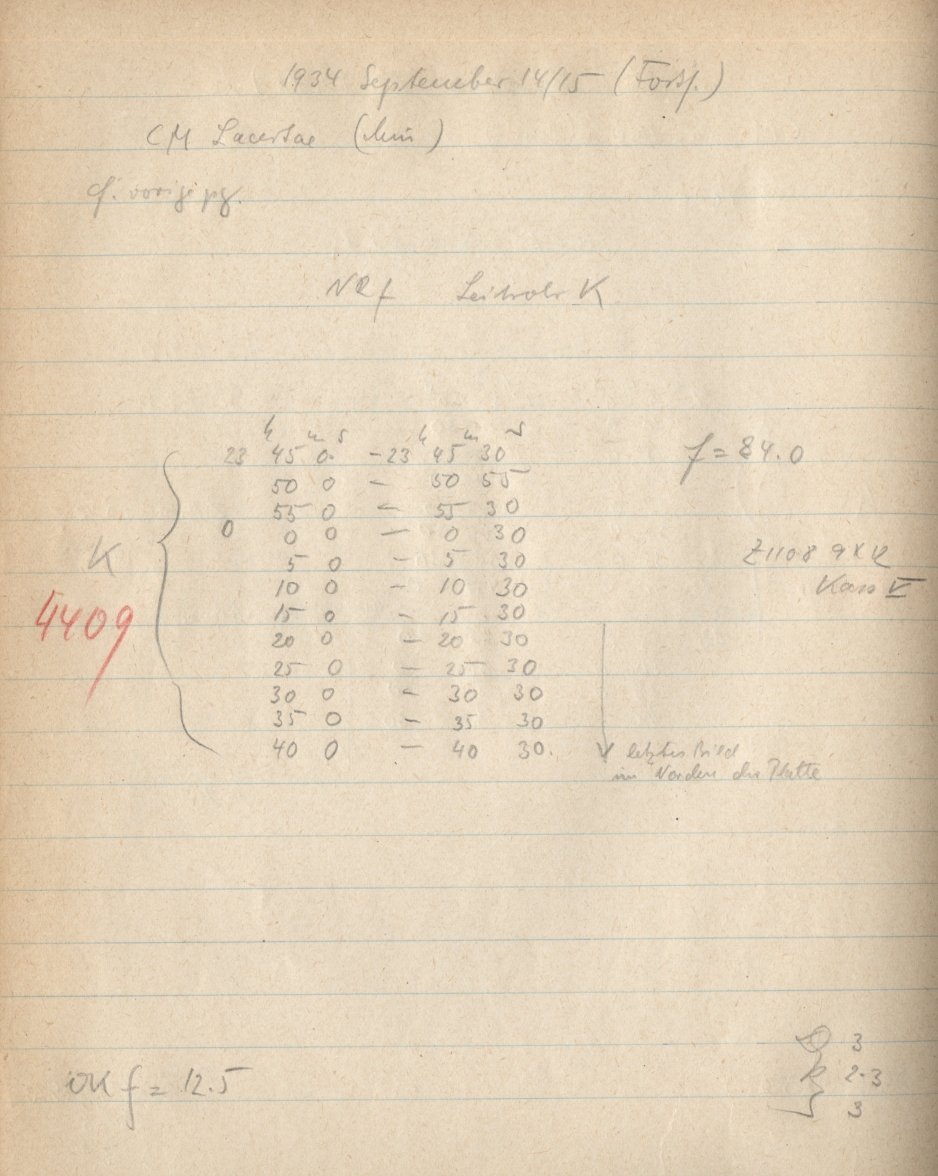 1934 September 14/15 (Forts.)
CM Lacertae (Min)
cf. vorige pg.
NRf Leitrohr K
h m s h m s
23 45 0 - 23 45 30
f = 84.0
50 0 - 50 55
55 0 - 55 30
0 0 0 - 0 30
K
5 0 - 5 30
Z1108 9x12
10 0 - 10 30
Kass V
4409
15 0 - 15 30
20 0 - 20 30
25 0 - 25 30
30 0 - 30 30
35 0 - 35 30
40 0 - 40 30.
letztes Bild
im Norden der Platte
3
2-3
f = 12.5
3